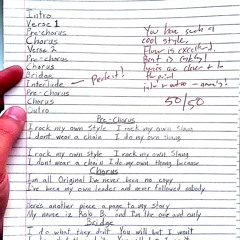 Intro
Verse 1
Pre-chorus
Chorus
Verse 2
Pre-Chorus
Chorus
Bridge
Interlude
Pre-Chorus
Chorus
Outro
Perfect!
You have such a
cool style.
Flow is excellent.
Beat is catchy!
are clear to
the point
intro + outro
50/50
Pre-Chorus
I rock my own Style I rock my own Slang
I dont wear a chain I do my own thang
I rock my own Style I rock my own Slang
I dont wear a chain I do my own thang because
Chorus
I'm all Original I've never been no copy
I've been my own leader and never followed nobody
Here's another piece a page to my Story
My name is Rob B. and I'm the one and only
Bridge
I do what they dont You will but I wont